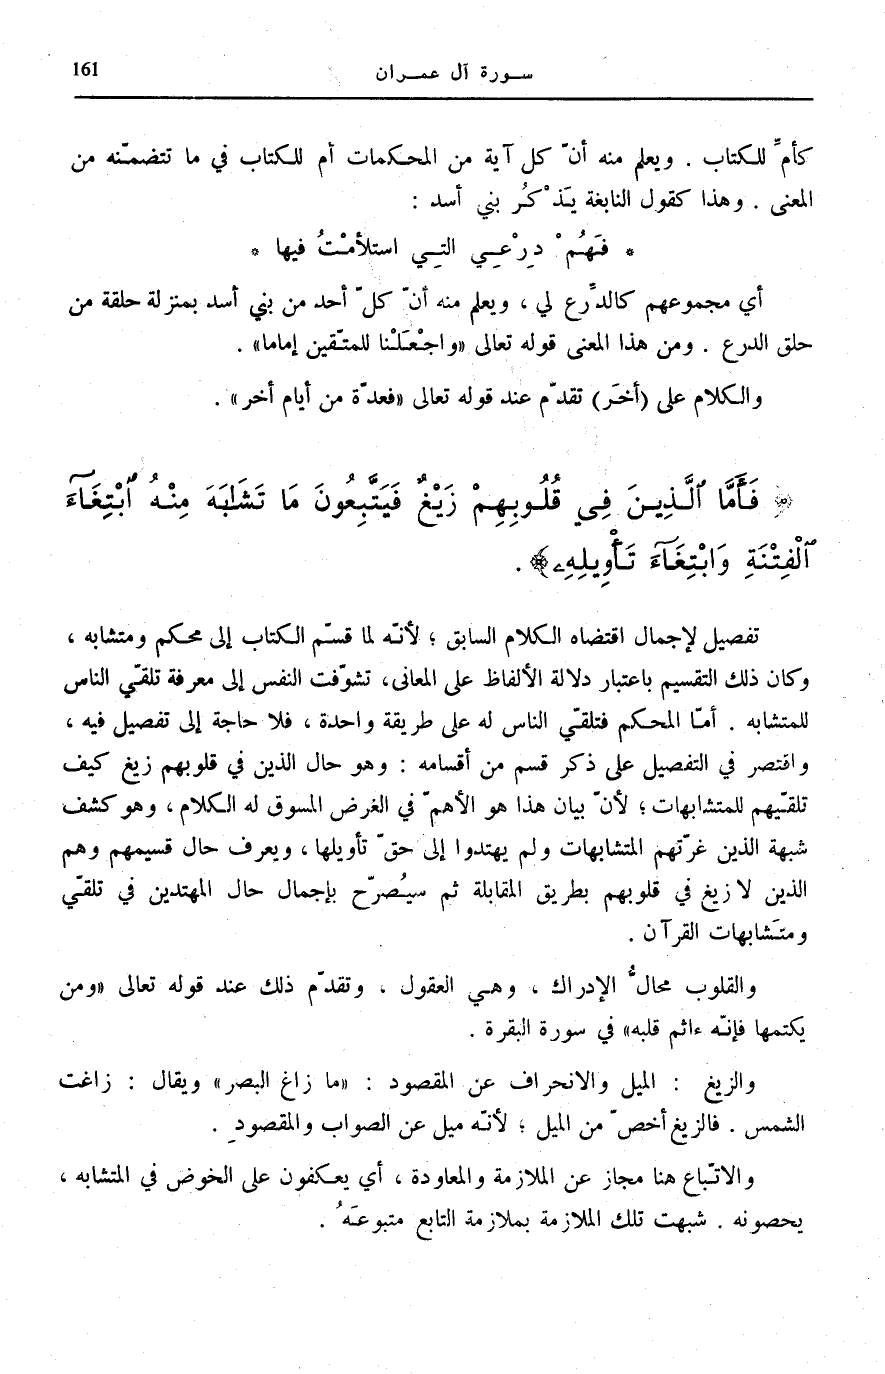 سورة آل عمران 161
كأمٍّ للكتاب . ويعلم منه أنّ كل آية من المحكمات أم للكتاب في ما تتضمّنه من
المعنى . وهذا كقول النابغة يَذْكُر بني أسد :
* فَهُمْ دِرْعِي التِي استلأمْتُ فيها *
أي مجموعهم كالدِّرع لي ، ويعلم منه أنّ كلّ أحد من بني أسد بمنزلة حلقة من
حلق الدرع . ومن هذا المعنى قوله تعالى «واجْعَلْنا للمتّقين إماما» .
والكلام على (أخَر) تقدّم عند قوله تعالى «فعدّة من أيام أخر» .
﴿ فَأَمَّا ٱلَّذِينَ فِي قُلُوبِهِمْ زَيْغٌ فَيَتَّبِعُونَ مَا تَشَٰبَهَ مِنْهُ ٱبْتِغَآءَ
ٱلْفِتْنَةِ وَابْتِغَآءَ تَأْوِيلِهِۦ﴾ .
تفصيل لإجمال اقتضاه الكلام السابق ؛ لأنّه لما قسّم الكتاب إلى محكم ومتشابه ،
وكان ذلك التقسيم باعتبار دلالة الألفاظ على المعاني، تشوّفت النفس إلى معرفة تلقّي الناس
للمتشابه . أمّا المحكم فتلقّي الناس له على طريقة واحدة ، فلا حاجة إلى تفصيل فيه ،
واقتصر في التفصيل على ذكر قسم من أقسامه : وهو حال الذين في قلوبهم زيغ كيف
تلقّيهم للمتشابهات ؛ لأنّ بيان هذا هو الأهمّ في الغرض المسوق له الكلام ، وهو كشف
شبهة الذين غرّتهم المتشابهات ولم يهتدوا إلى حقّ تأويلها ، ويعرف حال قسيمهم وهم
الذين لا زيغ في قلوبهم بطريق المقابلة ثم سيُصرّح بإجمال حال المهتدين في تلقّي
ومتَشابهات القرآن .
والقلوب محالُّ الإدراك ، وهي العقول ، وتقدّم ذلك عند قوله تعالى «ومن
يكتمها فإنّه ءاثم قلبه» في سورة البقرة .
والزيغ : الميل والانحراف عن المقصود : «ما زاغ البصر» ويقال : زاغت
الشمس . فالزيغ أخصّ من الميل ؛ لأنّه ميل عن الصواب والمقصود .
والاتّباع هنا مجاز عن الملازمة والمعاودة ، أي يعكفون على الخوض في المتشابه ،
يحصونه . شبهت تلك الملازمة بملازمة التابع متبوعَهُ .